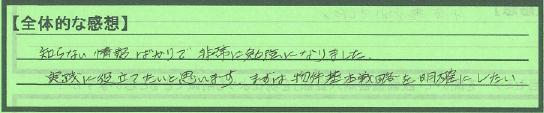 【全体的な感想】
知らない情報ばかりで非常に勉強になりました。
実践に役立てたいと思います。まずは物件基本戦略を明確にしたい。